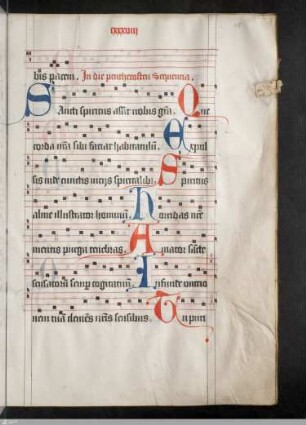 lxxxviiij
bis pacem. In die penthecosten Sequencia.
Sancti spiritus assit nobis gra. Que
corda nra sibi faciat habitaculu. Expul
sis inde cunctis vicijs spiritalibz. Spiritus
alme illustrator hominu. Horridas nre
mentis purga tenebras. Amator sancte
sensatoru semp cogitatuu. Infunde vnctio
nem tua clemes nris sensibus. Tu puri